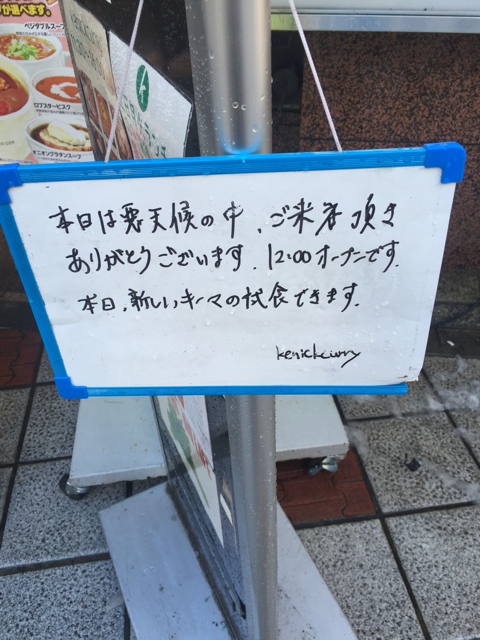 が選べます。
ベジタブルスープ
ロブスタービスク
オニオングラタンスープ
本日は悪天候の中、ご来店頂き
ありがとうございます。12:00オープンです。
本日、新しいキーマの試食できます。
kenickcurry